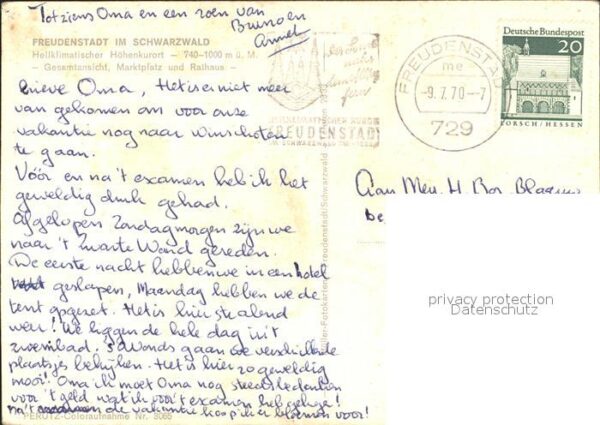 Tot ziens Oma en een zoen van
Bruno en
Annet
FREUDENSTADT IM SCHWARZWALD
Heilklimatischer Höhenkurort – 740–1000 m ü. M.
– Gesamtansicht, Marktplatz und Rathaus –
Lieve Oma, Het is er niet meer
van gekomen om voor onze
vakantie nog naar Winschoten
te gaan.
Vóór en na 't examen heb ik het
geweldig druk gehad.
Afgelopen Zondagmorgen zijn we
naar 't Zwarte Woud gereden.
De eerste nacht hebben we in een hotel
geslapen, Maandag hebben we de
tent opgezet. Het is hier stralend
weer! We liggen de hele dag in 't
zwembad. 's Avonds gaan we verschillende
plaatsjes bekijken. Het is hier zo geweldig
mooi! Oma ik moet Oma nog steeds bedanken
voor 't geld wat ik voor 't examen heb gehad!
Na de vakantie koop ik er bloemen voor!
PERUTZ-Coloraufnahme Nr. 3065
FREUDENSTADT
FREUDENSTADT
me
-9.7.70-7
729
Deutsche Bundespost
20
LORSCH/HESSEN
Aan Mev. H. Bos
privacy protection
Datenschutz